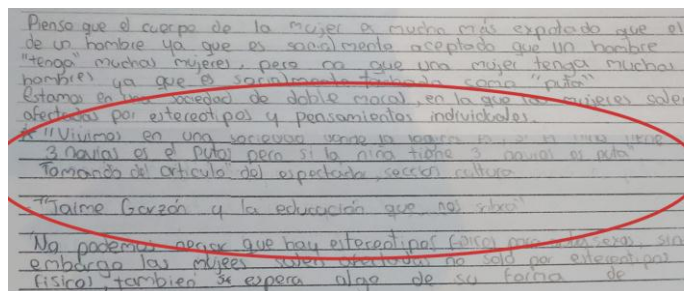 Pienso que el cuerpo de la mujer es mucho más explotado que el
de un hombre ya que es socialmente aceptado que un hombre
"tenga" muchas mujeres, pero no que una mujer tenga muchos
hombres ya que es socialmente como "puta"
Estamos en una sociedad de doble moral, en la que las mujeres salen
afectadas por estereotipos y pensamientos individuales.
"Vivimos en una sociedad donde la
3 novias es el putas pero si la niña tiene 3 novios es puta"
Tomando del articulo del espectador, sección cultura
"Jaime Garzón y la educación que nos"
"No podemos negar que hay estereotipos físicos para sexos, sin
embargo las mujeres salen afectadas no solo por estereotipos
fisicos, tambien se espera algo de su forma de